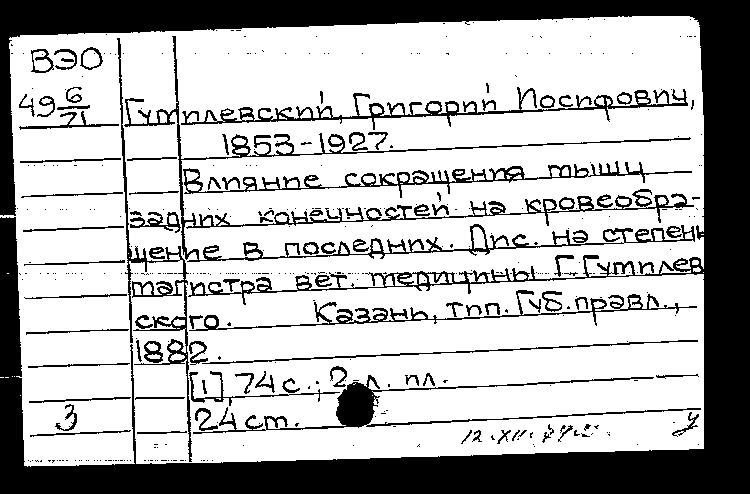 ВЭО
49 6/71
Гутилевский, Григорий Иосифович,
1853-1927.
Влияние сокращения мышц
задних конечностей на кровеобра-
щение в последних. Дис. на степень
магистра вет. медицины Г. Гутилев
ского. Казань, тип. Губ. правл.,
1882.
[1], 74 с.; 2 л. ил.
24 см.
3
У